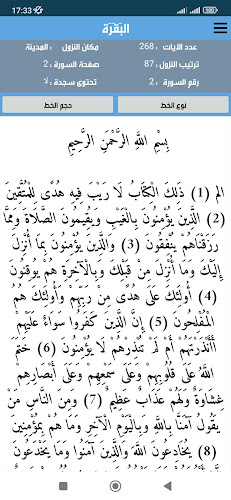 17:33
البَقَرَة
عدد الآيات : 268 مكان النزول : المدينة
ترتيب النزول : 87 صفحة السورة : 2
رقم السورة : 2 تحتوي سجدة : لا
نوع الخط حجم الخط
بِسْمِ اللَّهِ الرَّحْمَنِ الرَّحِيمِ
الم (1) ذَلِكَ الْكِتَابُ لَا رَيْبَ فِيهِ هُدًى لِلْمُتَّقِينَ
(2) الَّذِينَ يُؤْمِنُونَ بِالْغَيْبِ وَيُقِيمُونَ الصَّلَاةَ وَمِمَّا
رَزَقْنَاهُمْ يُنْفِقُونَ (3) وَالَّذِينَ يُؤْمِنُونَ بِمَا أُنْزِلَ
إِلَيْكَ وَمَا أُنْزِلَ مِنْ قَبْلِكَ وَبِالْآخِرَةِ هُمْ يُوقِنُونَ
(4) أُولَئِكَ عَلَى هُدًى مِنْ رَبِّهِمْ وَأُولَئِكَ هُمُ
الْمُفْلِحُونَ (5) إِنَّ الَّذِينَ كَفَرُوا سَوَاءٌ عَلَيْهِمْ
أَأَنْذَرْتَهُمْ أَمْ لَمْ تُنْذِرْهُمْ لَا يُؤْمِنُونَ (6) خَتَمَ
اللَّهُ عَلَى قُلُوبِهِمْ وَعَلَى سَمْعِهِمْ وَعَلَى أَبْصَارِهِمْ
غِشَاوَةٌ وَلَهُمْ عَذَابٌ عَظِيمٌ (7) وَمِنَ النَّاسِ مَنْ
يَقُولُ آمَنَّا بِاللَّهِ وَبِالْيَوْمِ الْآخِرِ وَمَا هُمْ بِمُؤْمِنِينَ
(8) يُخَادِعُونَ اللَّهَ وَالَّذِينَ آمَنُوا وَمَا يَخْدَعُونَ